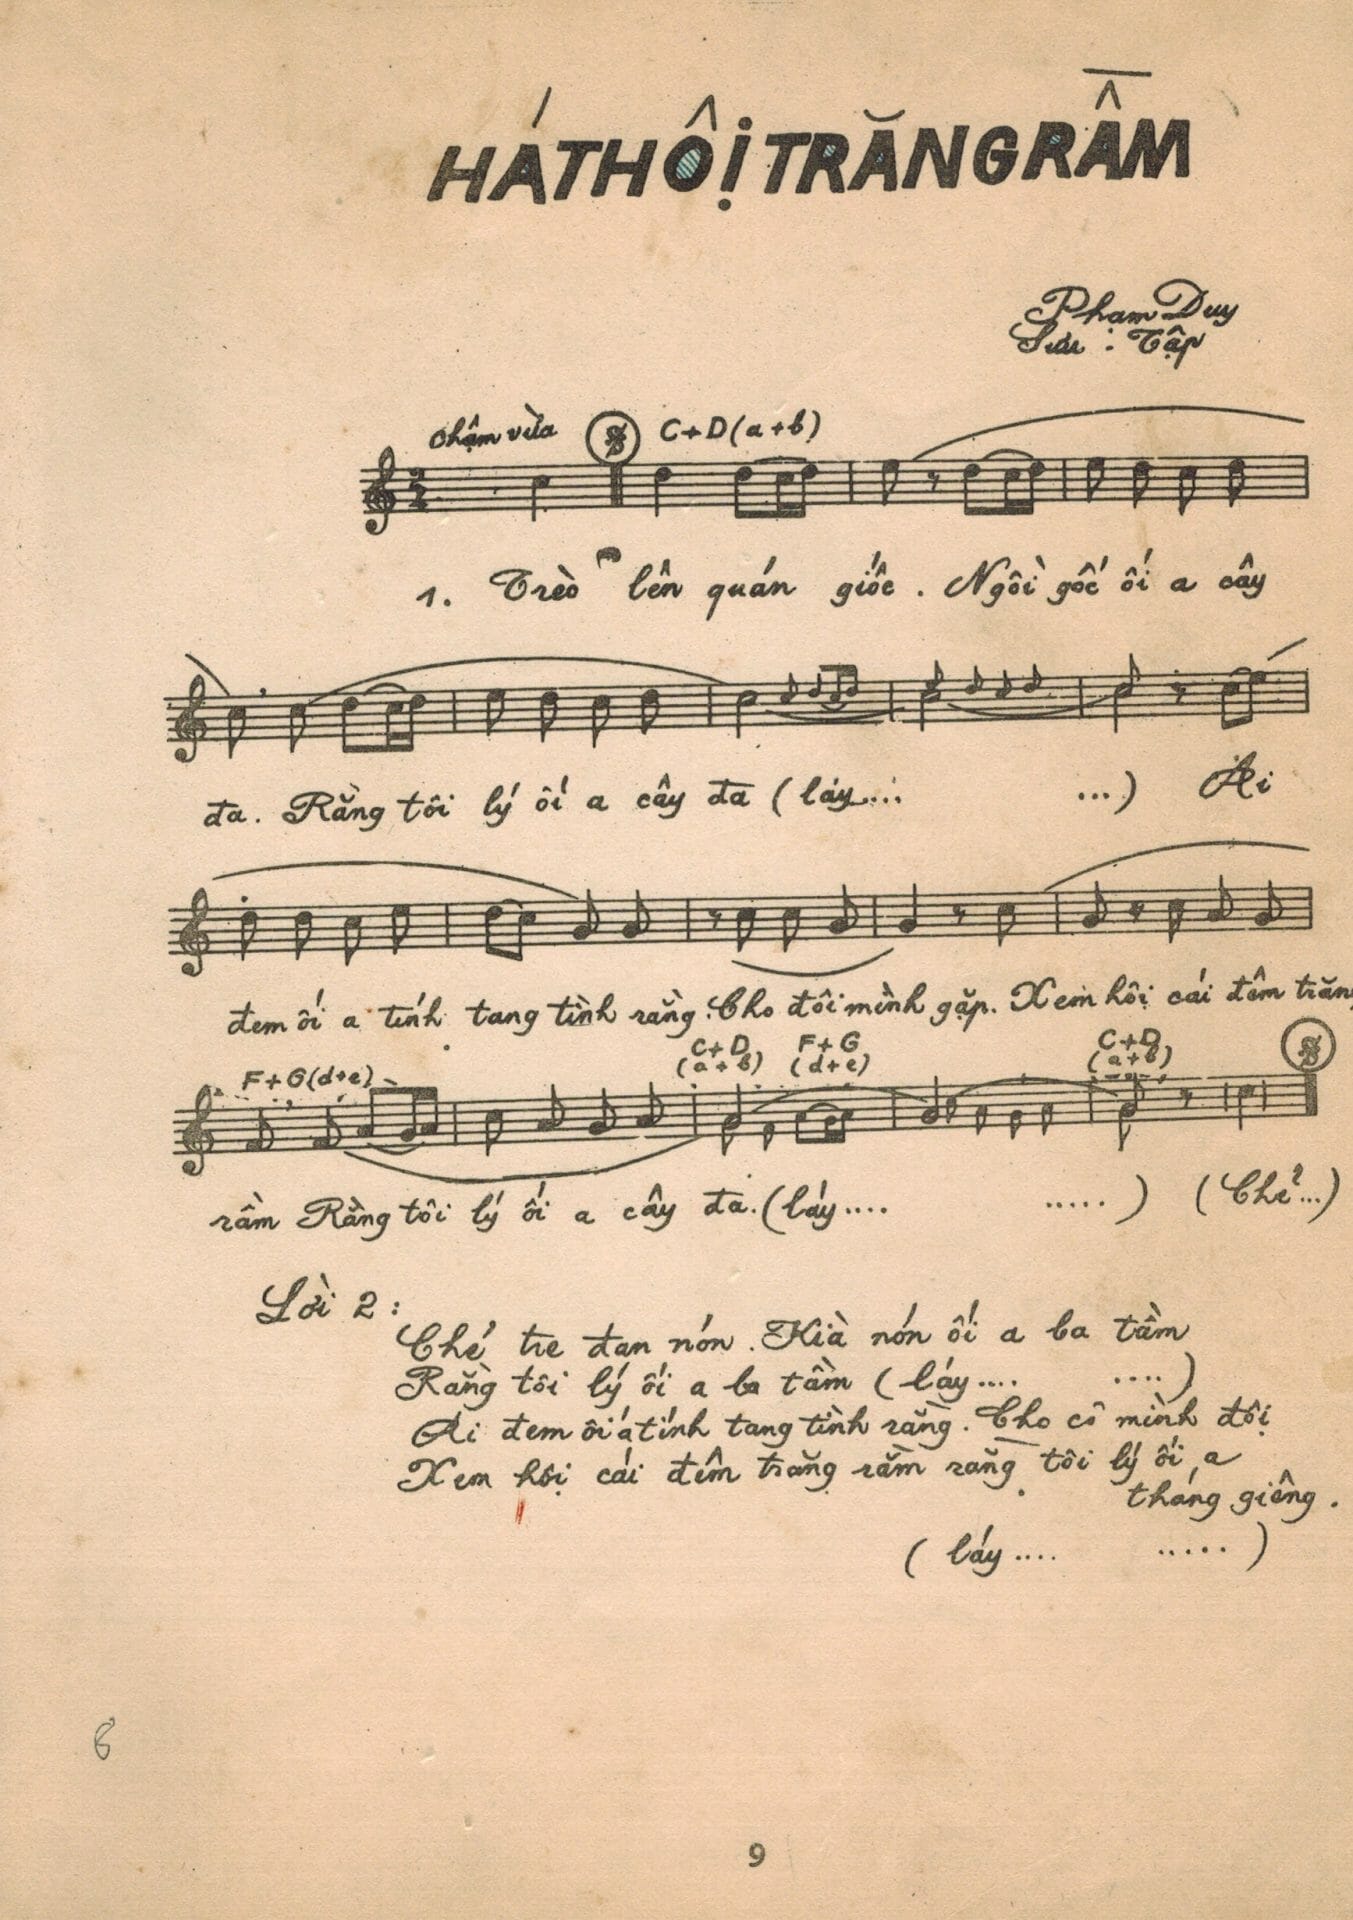 HÁT HỘI TRĂNG RẰM
Phạm Duy
Sưu : Tập
Chậm vừa C+D (a+b)
1. Trèo lên quán giốc . Ngồi gốc ối a cây
đa. Rằng tôi lý ối a cây đa ( láy.... ...) Ai
đem ối a tính tang tình rằng. Cho đôi mình gặp. Xem hội cái đêm trăng
F+G (d+e) C+D (a+b) F+G (d+e) C+D (a+b)
rằm Rằng tôi lý ối a cây đa. (láy.... .....) (Chẻ...)
Lời 2 :
Chẻ tre đan nón . Kìa nón ối a ba tầm
Rằng tôi lý ối a ba tầm ( láy.... ....)
Ai đem ối a tính tang tình rằng. Cho cô mình đội
Xem hội cái đêm trăng rằm rằng tôi lý ối a
tháng giêng .
( láy.... ..... )
6
9